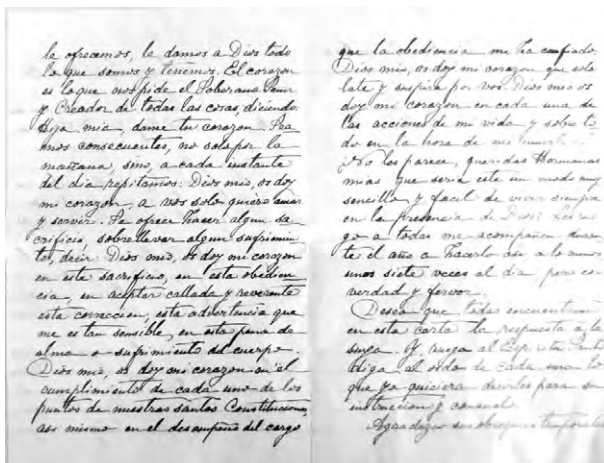 le ofrecemos, le damos a Dios todo
lo que somos y tenemos. El corazon
es lo que nos pide el Soberano Señor
y Creador de todas las cosas, diciendo:
Hija mia, dame tu corazon. Sea
mos consecuentes, no solo por la
mañana, sino, a cada instante
del dia repitamos: Dios mio, os doy
mi corazon, a vos solo quiero amar
y servir. Se ofrece hacer algun sa
crificio, sobrellevar algun sufrimien
to, decir: Dios mio, os doy mi corazon
en este sacrificio, en esta obedien
cia, en aceptar callada y reverente
esta correccion, esta advertencia que
me es tan sensible, en esta pena de
alma o sufrimiento de cuerpo.
Dios mio, os doy mi corazon en el
cumplimiento de cada uno de los
puntos de nuestras santas Constituciones
asi mismo en el desempeño del cargo
que la obediencia me ha confiado.
Dios mio, os doy mi corazon que solo
late y suspira por vos. Dios mio os
doy mi corazon en cada una de
las acciones de mi vida y sobre to
do en la hora de mi muerte.
¿No les parece, queridas Hermanas
mias que seria este un modo muy
sencillo y facil de vivir siempre
en la presencia de Dios? Les rue
go a todas me acompañen duran
te el año a hacerlo asi a lo menos
unas siete veces al dia pero co
verdad y fervor.
Deseo que todas encuentren
en esta carta la respuesta a la
suya. Y, ruego al Espiritu Santo
diga al oido de cada una lo
que yo quisiera decirles para su
instruccion y consuelo.
Agradezco sus obsequios temporales